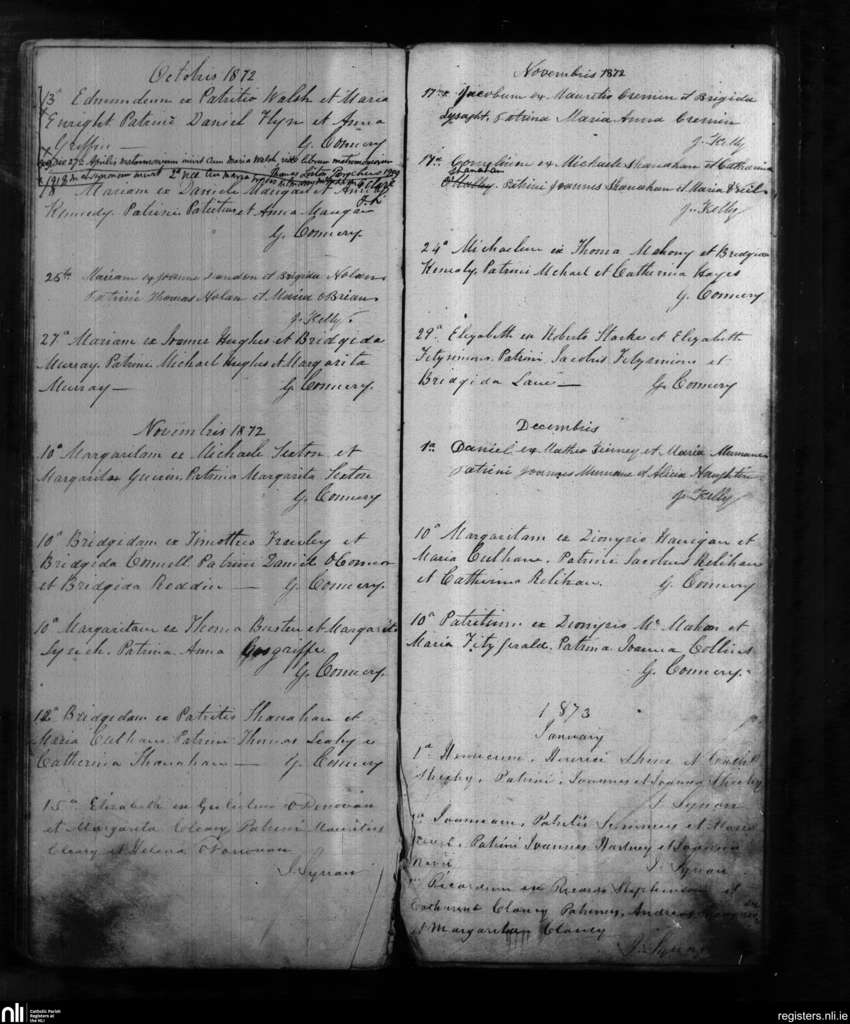 Octobris 1872
13a Edmundum ex Patritio Walsh et Maria
Enright Patrini Daniel Flyn et Anna
Griffin — G. Connery
27a Aprilis matrimonium
1918
Mariam ex Daniele Mangan et
Kennedy Patrini Patritius et Anna Mangan
G. Connery
26th Mariam ex Joanne et Brigida Nolan
Patrini Thomas Nolan et Maria O Brian
J. Kelly
27a Mariam ex Joanne Hughes et Bridgida
Murray. Patrini Michael Hughes et Margarita
Murray — G. Connery
Novembris 1872
10a Margaritam ex Michaele Sexton et
Margarita Guerin. Patrina Margarita Sexton
G. Connery
10a Bridgedam ex Timotheo Frawley et
Bridgida Connell. Patrini Daniel O Connor
et Bridgida Reddin — G. Connery.
10a Margaritam ex Thoma et Margarita
Lynch. Patrina Anna
G. Connery.
12a Bridgedam ex Patritio Shanahan et
Maria Culhane Patrini Thomas Leahy et
Catherina Shanahan — G. Connery
15a Elizabeth ex Gulielmo O Donovan
et Margarita Cleary Patrini Mauritius
Cleary et Helena O Donovan
J. Synan
Novembris 1872
17a Jacobum ex Mauritio Cremin et Brigida
Lysaght. Patrina Maria Anna Cremin
J. Kelly
17a ex Michaele Shanahan et Catharina
Shanahan
Patrini Joannes Shanahan et Maria
J. Kelly
24a Michaelem ex Thoma Mahony et Bridgida
Kennealy. Patrini Michael et Catherina Hayes
G. Connery
29a Elizabeth ex Roberto Stacke et Elizabeth
Fitzsimons. Patrini Jacobus Fitzsimons et
Bridgida — G. Connery
Decembris
1a Daniel ex Matheo Finney et Maria Murnane
Patrini Joannes Murnane et Alicia Naughten
J. Kelly
10a Margaritam ex Dionysio Hanrigan et
Maria Culhane. Patrini Jacobus Relihan
et Catherina Relihan. G. Connery
10a Patritium ex Dionysio Mc Mahon et
Maria Fitzgerald. Patrina Joanna Collins
G. Connery.
1873
January
1a Henricum, Henrici Shine et
Sheehy, Patrini, Joannes et Joanna Sheehy
J. Synan
Joannem, Patritii et Maria
Patrini Joannes Hartney et Joanna
J. Synan
Ricardum ex Ricardo Stephenson et
Catherina Clancy Patrinus, Andreas
et Margaritam Clancy
J. Synan
nli
Catholic Parish
Registers at
the NLI
registers.nli.ie